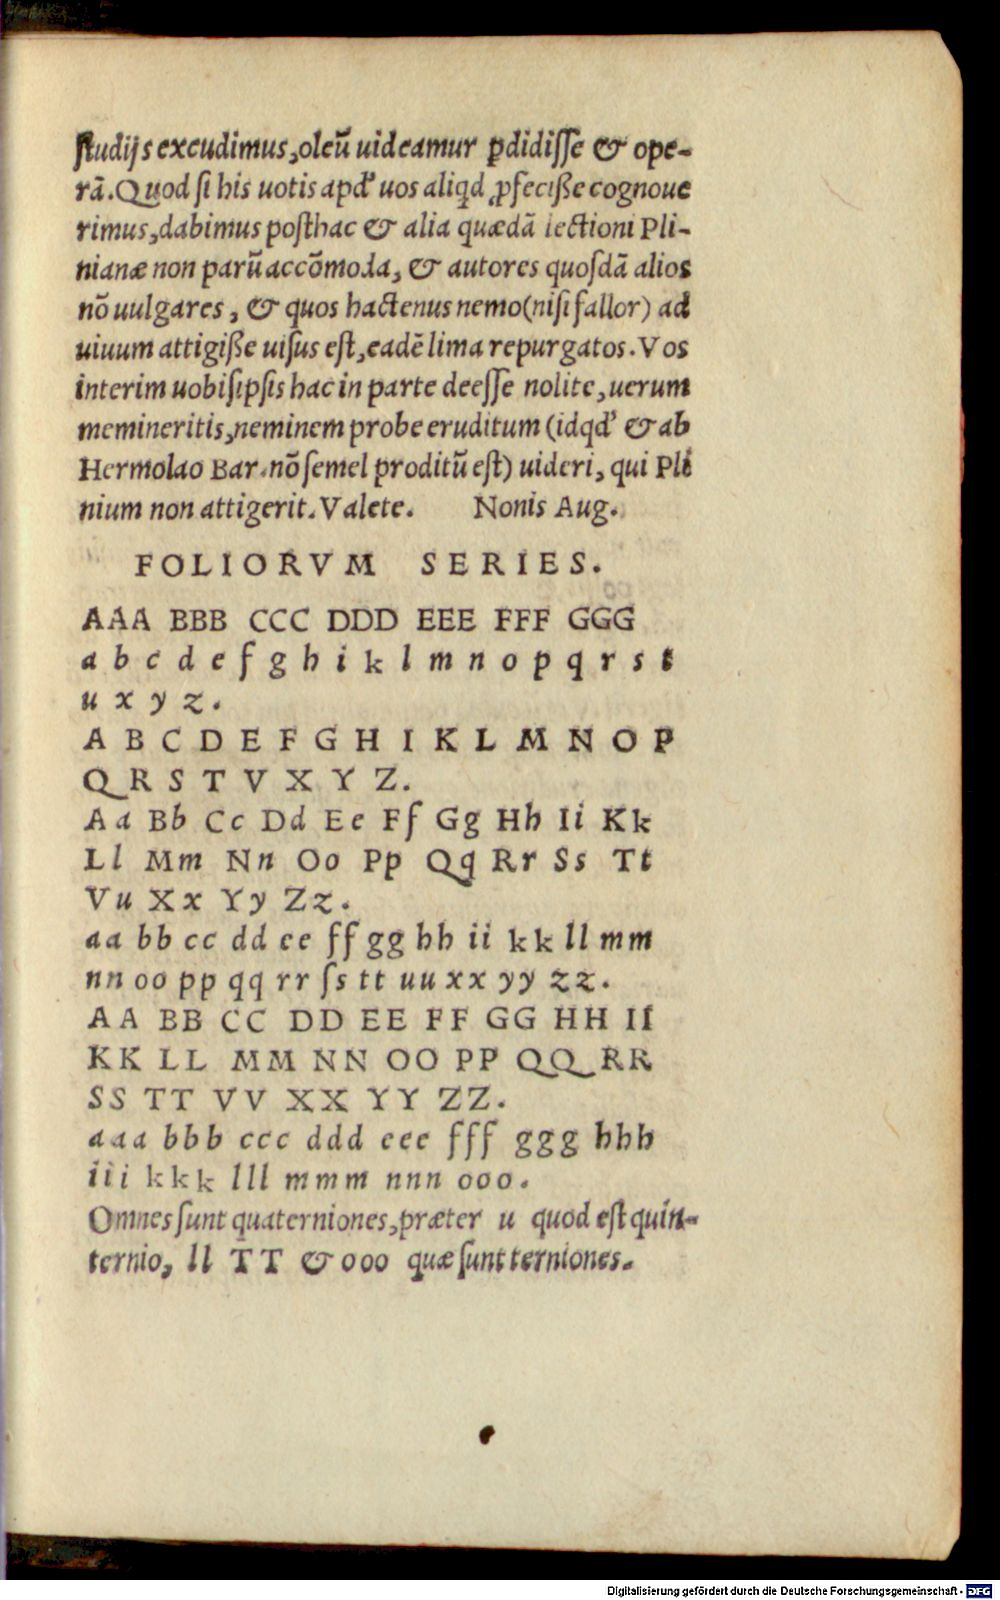 studijs excudimus, oleũ uideamur ꝑdidisse & ope-
rã. Quod si his uotis apd' uos aliqd ꝓfeciße cognoue
rimus, dabimus posthac & alia quædã lectioni Pli-
nianæ non parũ accõmoda, & autores quosdã alios
nõ uulgares, & quos hactenus nemo (nisi fallor) ad
uiuum attigiße uisus est, eadẽ lima repurgatos. Vos
interim uobisipsis hac in parte deesse nolite, uerum
memineritis, neminem probe eruditum (idqd' & ab
Hermolao Bar. nõ semel proditũ est) uideri, qui Pli
nium non attigerit. Valete. Nonis Aug.
FOLIORVM SERIES.
AAA BBB CCC DDD EEE FFF GGG
a b c d e f g h i k l m n o p q r s t
u x y z.
A B C D E F G H I K L M N O P
Q R S T V X Y Z.
Aa Bb Cc Dd Ee Ff Gg Hh Ii Kk
Ll Mm Nn Oo Pp Qq Rr Ss Tt
Vu Xx Yy Zz.
aa bb cc dd ee ff gg hh ii kk ll mm
nn oo pp qq rr ſs tt uu xx yy zz.
AA BB CC DD EE FF GG HH II
KK LL MM NN OO PP QQ RR
SS TT VV XX YY ZZ.
aaa bbb ccc ddd eee fff ggg hhh
iii kkk lll mmm nnn ooo.
Omnes sunt quaterniones, præter u quod est quin-
ternio, ll TT & ooo quæ sunt terniones.
Digitalisierung gefördert durch die Deutsche Forschungsgemeinschaft - DFG